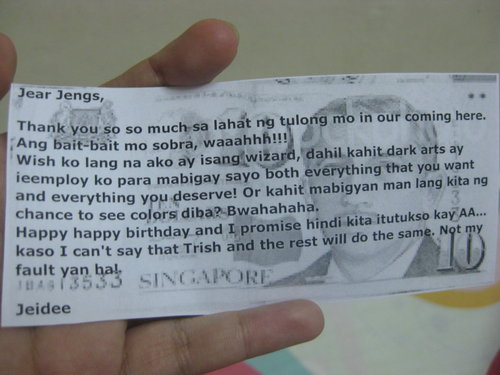 Jear Jengs,
Thank you so so much sa lahat ng tulong mo in our coming here.
Ang bait-bait mo sobra, waaahhh!!!
Wish ko lang na ako ay isang wizard, dahil kahit dark arts ay
ieemploy ko para mabigay sayo both everything that you want
and everything you deserve! Or kahit mabigyan man lang kita ng
chance to see colors diba? Bwahahaha.
Happy happy birthday and I promise hindi kita itutukso kay AA...
kaso I can't say that Trish and the rest will do the same. Not my
fault yan ha!
SINGAPORE
10
Jeidee